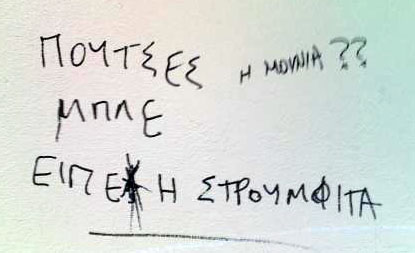 ΠΟΥΤΣΕΣ Η ΜΟΥΝΙΑ??
ΜΠΛΕ
ΕΙΠΕ Η ΣΤΡΟΥΜΦΙΤΑ